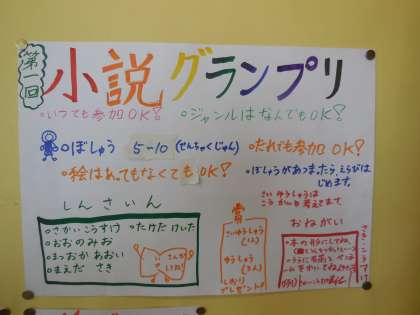 第一回
小説グランプリ
いつでも参加OK!
ジャンルはなんでもOK!
ぼしゅう 5-10(せんちゃくじゅん)
だれでも参加OK!
絵はあってもなくてもOK!
ぼしゅうがあつまったら、えらびはじめます。
さいゆうしゅうは
こうかいを考えてます。
しんさいん
さかいこうすけ
たけだ けいた
おおのみお
まつおか あおい
まえだ さき
さんかしてね!
賞
さいゆうしゅう
(1人)
ゆうしゅう
(3人)
しおり
プレゼント!
おねがい